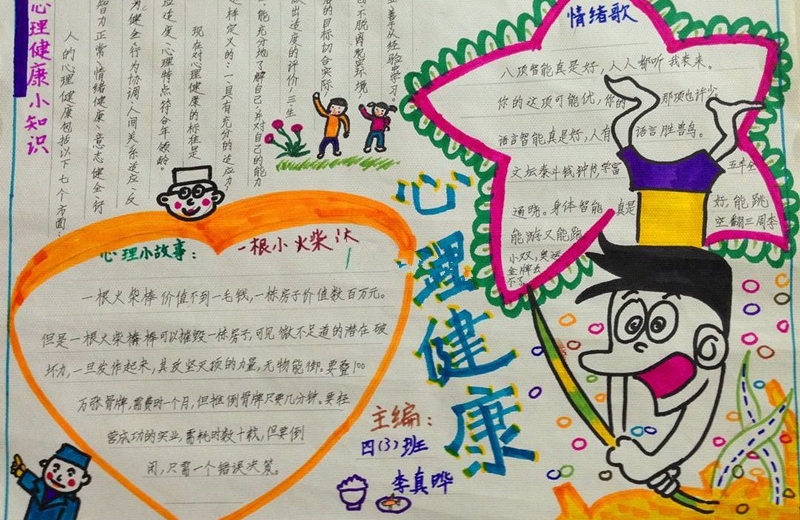 心理健康小知识
人的心理健康包括以下七个方面:
智力正常、情绪健康、意志健全、行
为健全、行为协调、人间关系适应、反
应适度、心理特点符合年领龄。
现在对心理健康的标准是
这样定义的:一具有充分的适应力
能充分地了解自己,并对自己的能力
做出适度的评价;三、生
活的目标切合实际;
不脱离现实环境
善于从经验中学习。
情绪歌
八项智能真是好,人人都听我表来。
你的这项可能优,你的那项也许少
语言智能真是好,人有语言胜兽鸟。
文坛泰斗钱钟书,学富五车
通晓。身体智能真是好,能跳
能游又能跑,空翻三周李
小双,奥运
金牌去
不了
心理健康
心理小故事:
一根小火柴
一根火柴棒价值不到一毛钱,一栋房子价值数百万元。
但是一根火柴棒棒可以摧毁一栋房子,可见微不足道的潜在破
坏力,一旦发作起来,其攻坚灭顶的力量,无物能御。要叠100
万张骨牌,需费时一个月,但推倒骨牌只要几分钟。要经
营成功的实业,需耗时数十载,但要倒
闭,只需一个错误决策。
主编:
四(3)班
李真晔